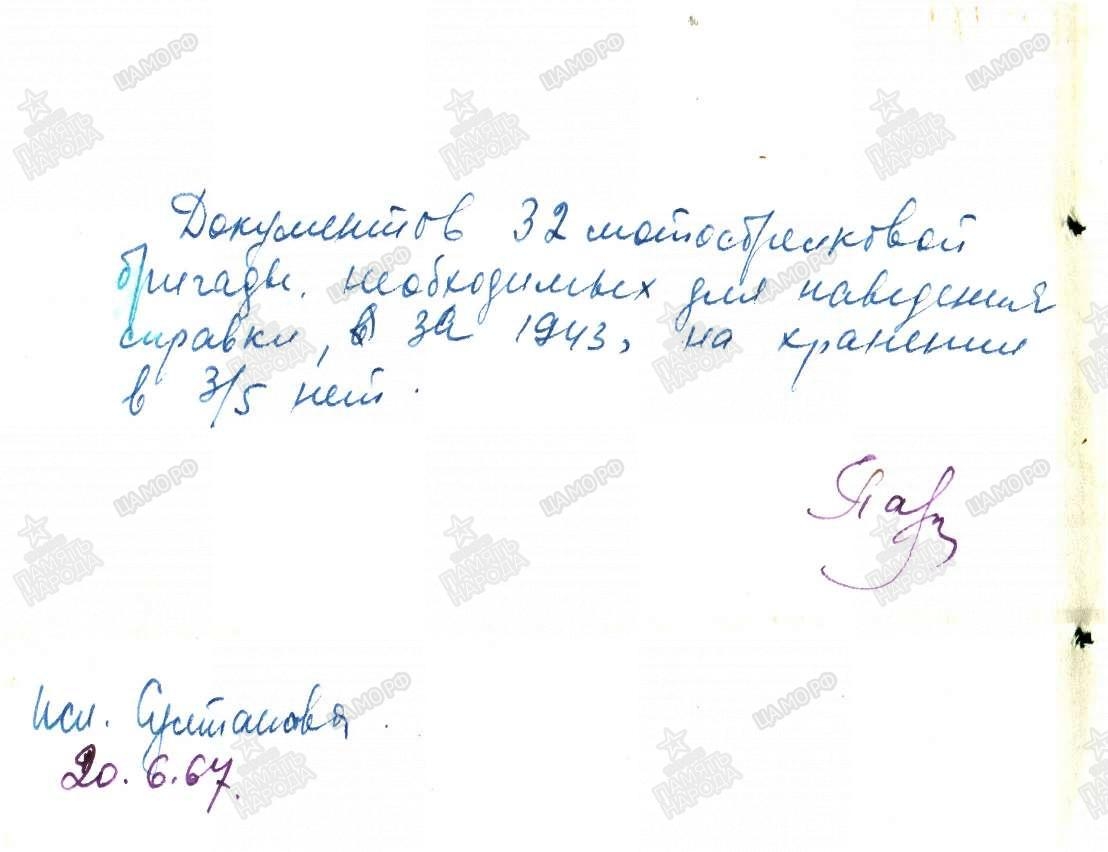 Документов 32 мотострелковой
бригады, необходимых для наведения
справки, за 1943, на хранении
в 3/5 нет.
Исп. Султанова
20.6.67.
ЦАМО.РФ
ПАМЯТЬ НАРОДА